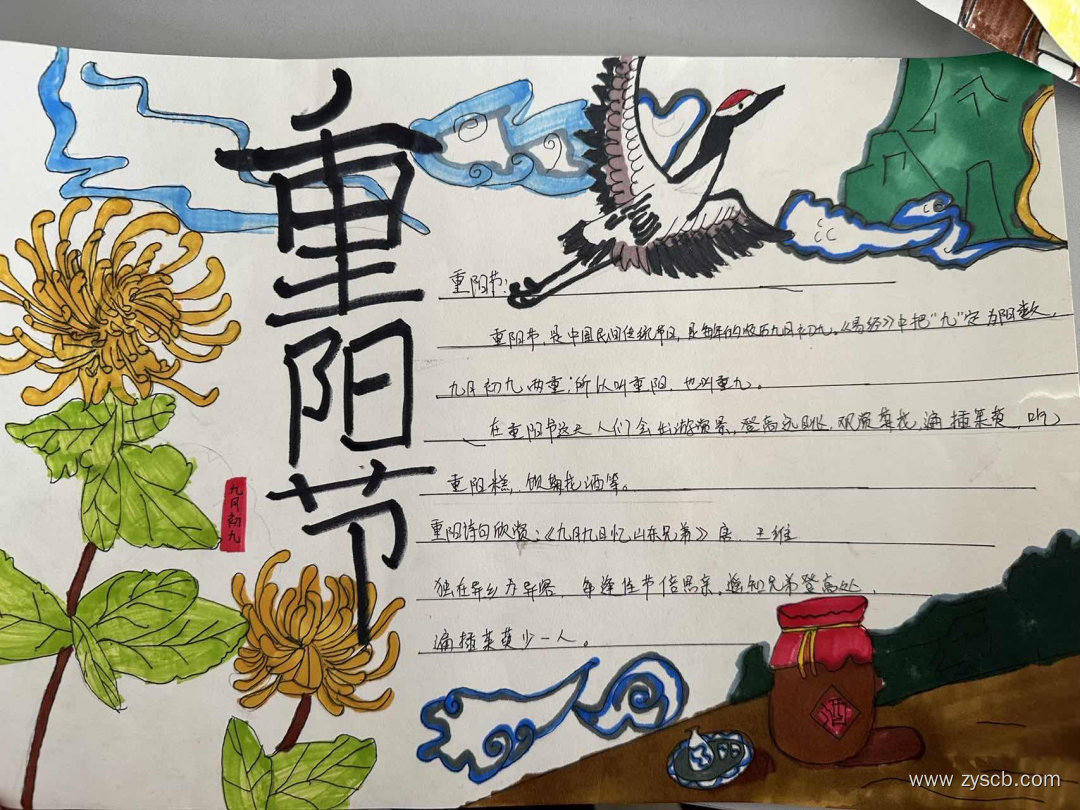 重阳节
九月初九
重阳节:
重阳节,是中国民间传统节日,是每年的农历九月初九。《易经》中把“九”定为阳数,
九月初九两重;所以叫重阳,也叫重九。
在重阳节这天人们会出游赏景,登高远眺,观赏菊花,遍插茱萸,吃
重阳糕,饮菊花酒等。
重阳诗句欣赏:《九月九日忆山东兄弟》唐 王维
独在异乡为异客,每逢佳节倍思亲,遥知兄弟登高处,
遍插茱萸少一人。
酒
www.zyscb.com